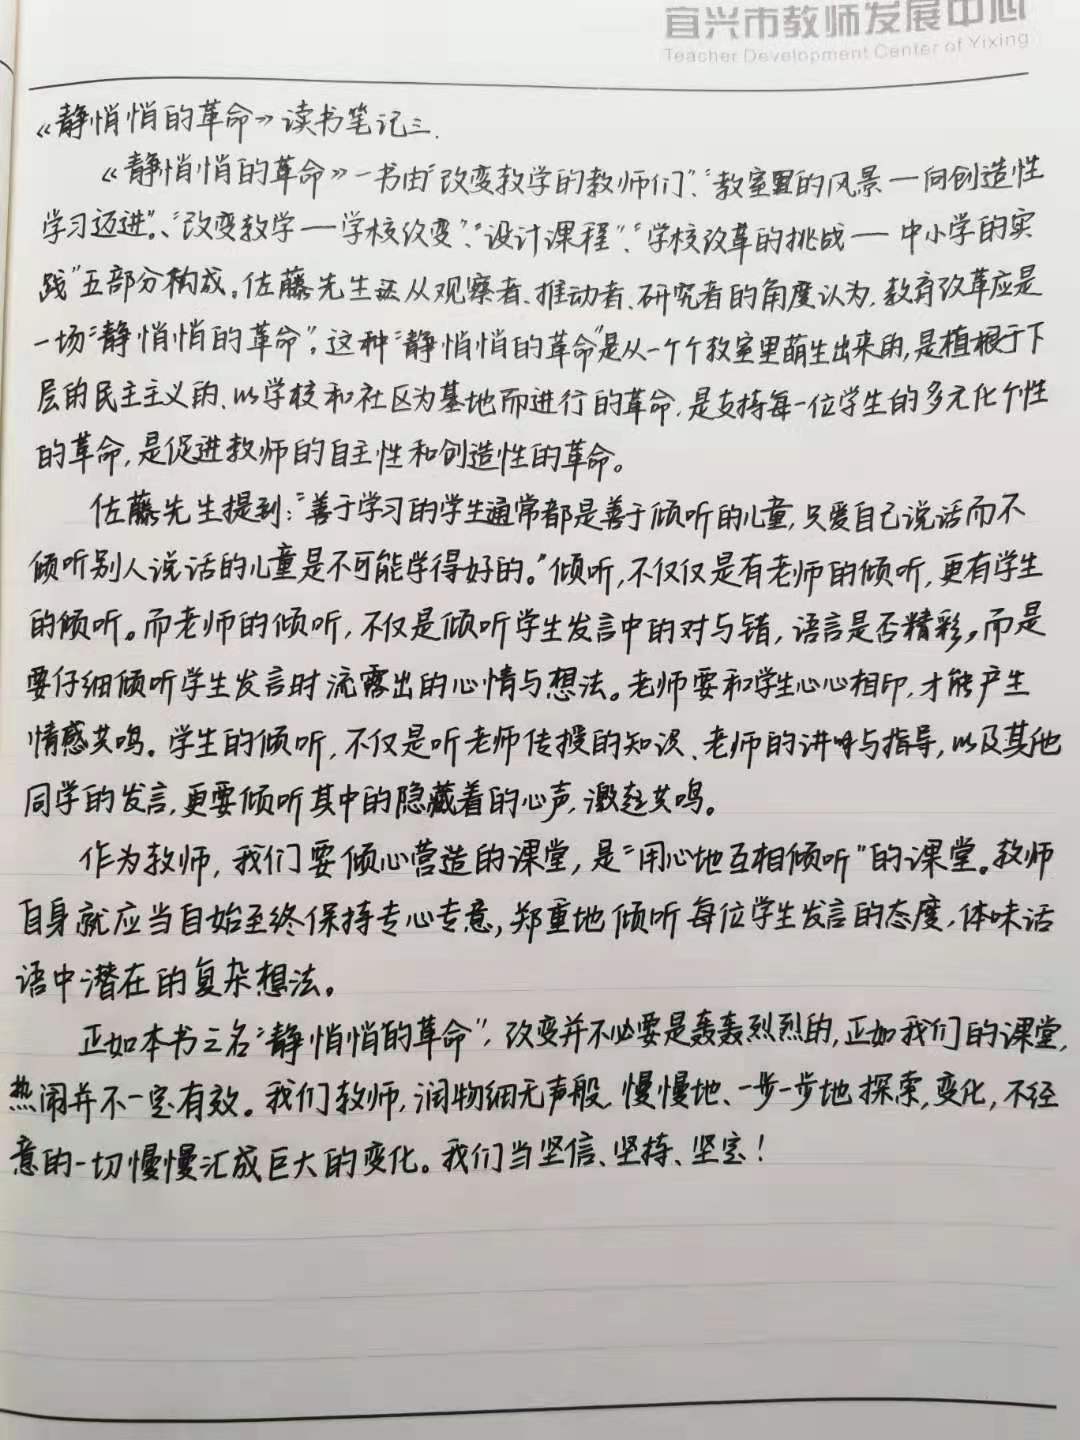 宜兴市教师发展中心
Teacher Development Center of Yixing
《静悄悄的革命》读书笔记三.
《静悄悄的革命》一书由“改变教学的教师们”、“教室里的风景—向创造性
学习迈进”、“改变教学—学校改变”、“设计课程”、“学校改革的挑战—中小学的实
践”五部分构成。佐藤先生从观察者、推动者、研究者的角度认为,教育改革应是
一场“静悄悄的革命”,这种“静悄悄的革命”是从一个个教室里萌生出来的,是植根于下
层的民主主义的、以学校和社区为基地而进行的革命,是支持每一位学生的多元化个性
的革命,是促进教师的自主性和创造性的革命。
佐藤先生提到:“善于学习的学生通常都是善于倾听的儿童,只爱自己说话而不
倾听别人说话的儿童是不可能学得好的。”倾听,不仅仅是有老师的倾听,更有学生
的倾听。而老师的倾听,不仅是倾听学生发言中的对与错,语言是否精彩,而是
要仔细倾听学生发言时流露出的心情与想法。老师要和学生心心相印,才能产生
情感共鸣。学生的倾听,不仅是听老师传授的知识、老师的讲与指导,以及其他
同学的发言,更要倾听其中的隐藏着的心声,激起共鸣。
作为教师,我们要倾心营造的课堂,是“用心地互相倾听”的课堂。教师
自身就应当自始至终保持专心专意,郑重地倾听每位学生发言的态度,体味话
语中潜在的复杂想法。
正如本书之名“静悄悄的革命”,改变并不必要是轰轰烈烈的,正如我们的课堂,
热闹并不一定有效。我们教师,润物细无声般,慢慢地、一步一步地探索,变化,不经
意的一切慢慢汇成巨大的变化。我们当坚信、坚持、坚定!